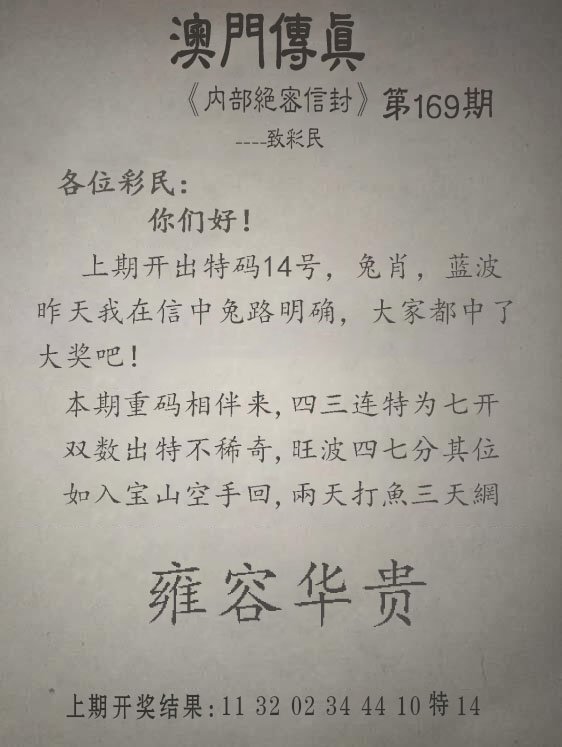 澳門傳真
《内部絕密信封》第169期
----致彩民
各位彩民：
你们好！
上期开出特码14号，兔肖，蓝波
昨天我在信中兔路明确，大家都中了
大奖吧！
本期重码相伴来,四三连特为七开
双数出特不稀奇,旺波四七分其位
如入宝山空手回,兩天打魚三天網
雍容华贵
上期开奖结果:11 32 02 34 44 10特14